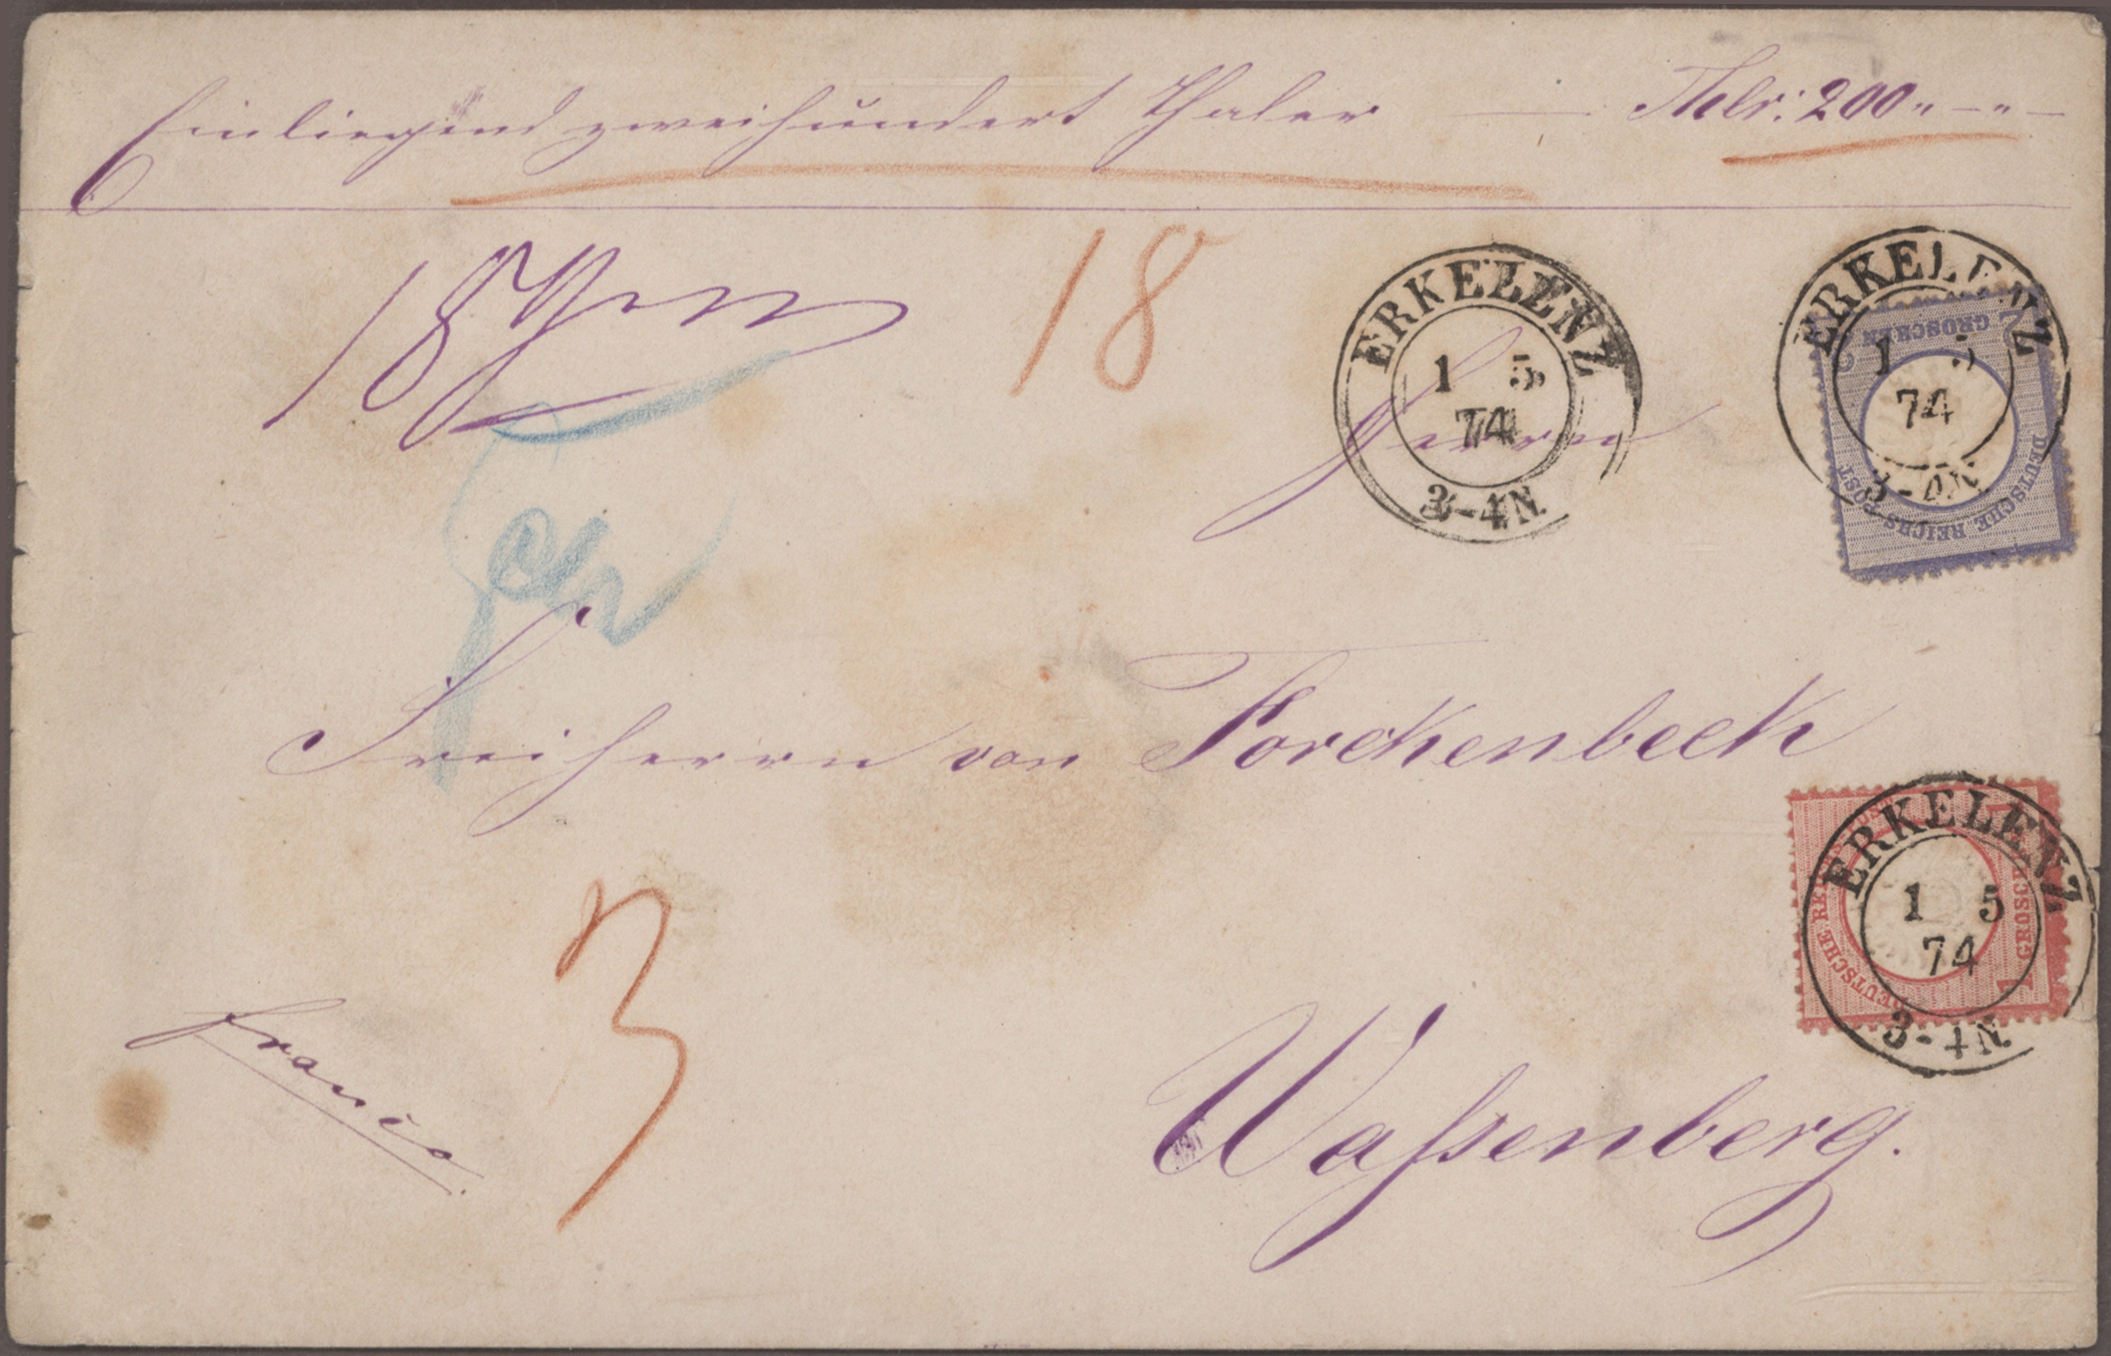 Einliegend zweihundert Thaler — Thlr: 200 „ — „ —
18 Grm
18
ERKELENZ
1 5
74
3-4N
ERKELENZ
1 5
74
3-4N
2 GROSCHEN 2
DEUTSCHE REICHS-POST
Herrn
Freiherrn von Forckenbeck
ERKELENZ
1 5
74
3-4N
1 GROSCHEN 1
DEUTSCHE REICHS-POST
3
franco
Waſsenberg.